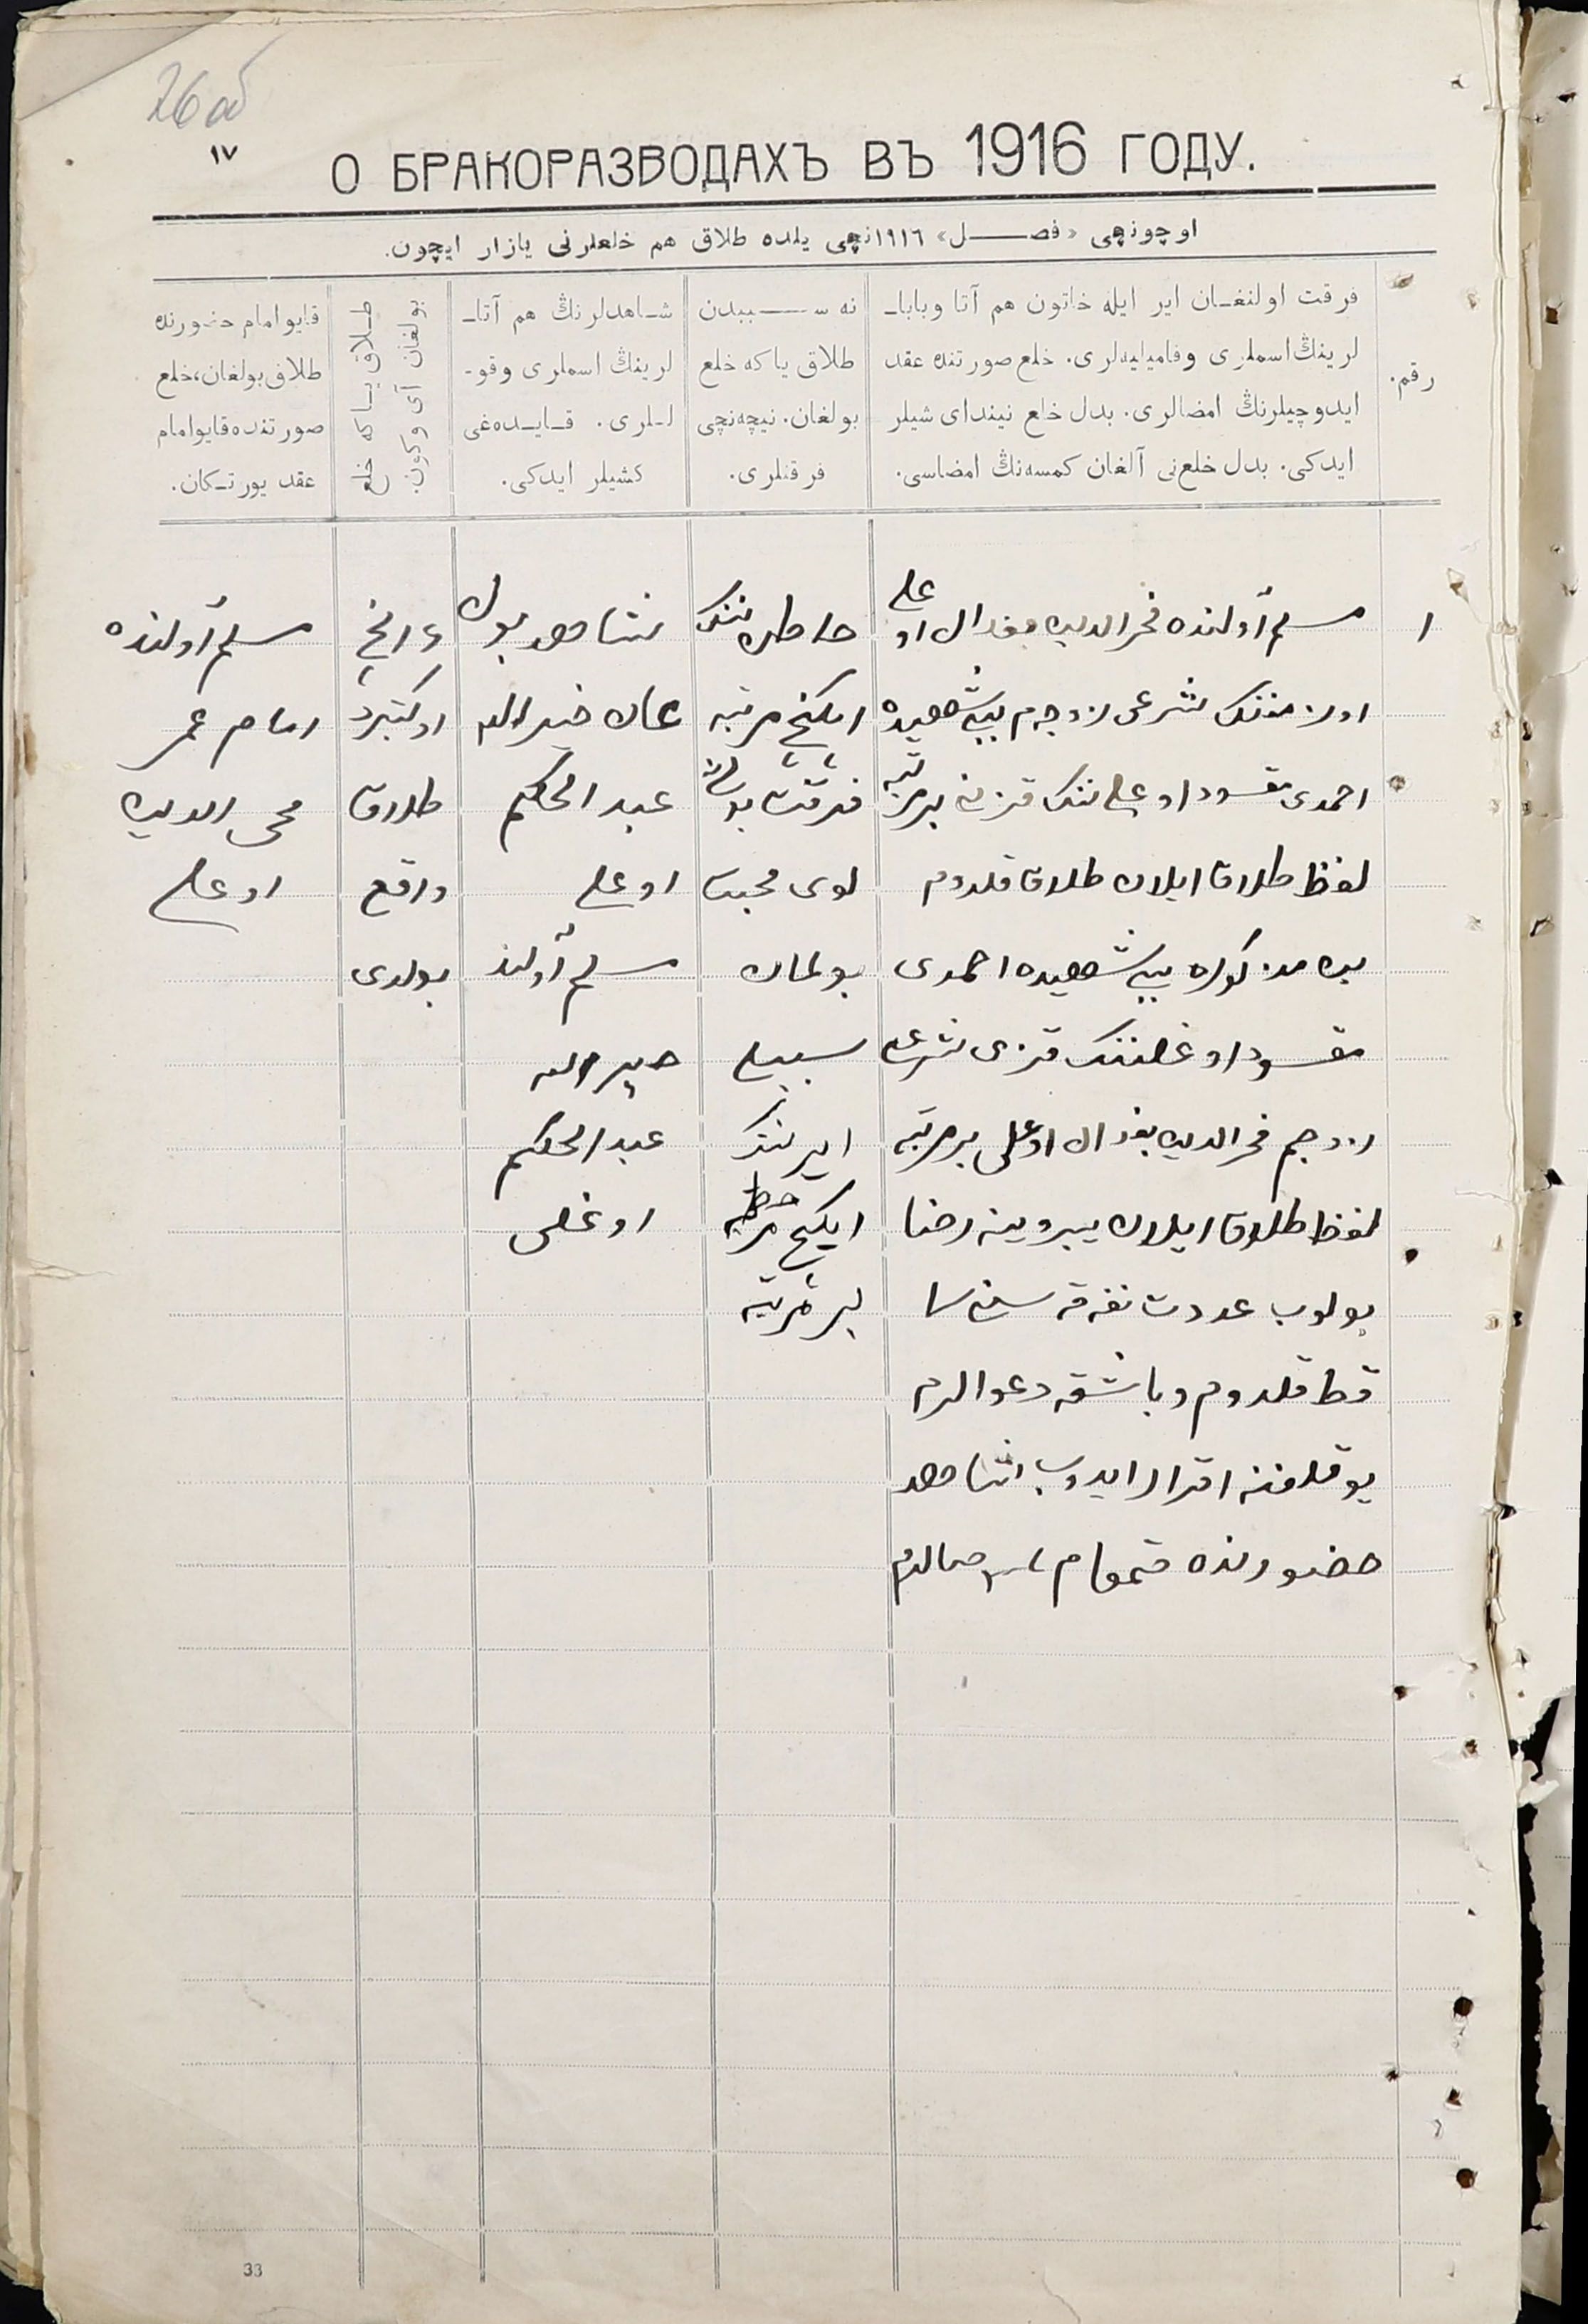 26 об
١٧
О БРАКОРАЗВОДАХЪ ВЪ 1916 ГОДУ.
اوچونچی «فصل» ١٩١٦نچی یلده طلاق هم خلعلرنی یازار ایچون.
رقم.
فرقت اولنغان ایر ایله خاتون هم آتا وبابا-
لرینڭ اسملری وفامیلیه‌لری. خلع صورتنده عقد
ایدوچیلرنڭ امضالری. بدل خلع نیندای شیلر
ایدکی. بدل خلع‌نی آلغان کمسه‌نڭ امضاسی.
نه سببدن
طلاق یا که خلع
بولغان. نیچه‌نچی
فرقتلری.
شاهدلرنڭ هم آتا-
لرینڭ اسملری وقو-
للری. قایده‌غی
کشیلر ایدکی.
طلاق یا که خلع
بولغان آی وکون.
قایو امام حضورنده
طلاق بولغان، خلع
صورتنده قایو امام
عقد یورتکان.
١
مسلم آولنده فخرالدین بغدال اوغلی
اوزمننک شرعی زوجم بیبی شهیده
احمدی مقسود اوغلی ننک قزنه بر مرتبه
لفظ طلاق ایلان طلاق قلدوم
من مذکوره بیبی شهیده احمدی
مقسود اوغلننک قزی شرعی
زوجم فخرالدین بغدال اوغلی بر مرتبه
لفظ طلاق ایلان بیروینه رضا
بولوب عدت نفقه سنی
قط قلدوم وباشقه دعوالرم
یوقلقنه اقرار ایدوب شاهد
حضورنده
خاطره ننک
ایکنچی مرتبه
فرقت
لوی محبت
بولمان
سببلی
ایرننک
ایکنچی
بر مرتبه
شاهد بولدی
خیرالله
عبدالحکیم
اوغلی
مسلم آولنده
خیرالله
عبدالحکیم
اوغلی
٤ انچی
اوکتبرده
طلاق
واقع
بولدی
مسلم آولنده
امام عمر
محی الدین
اوغلی
33